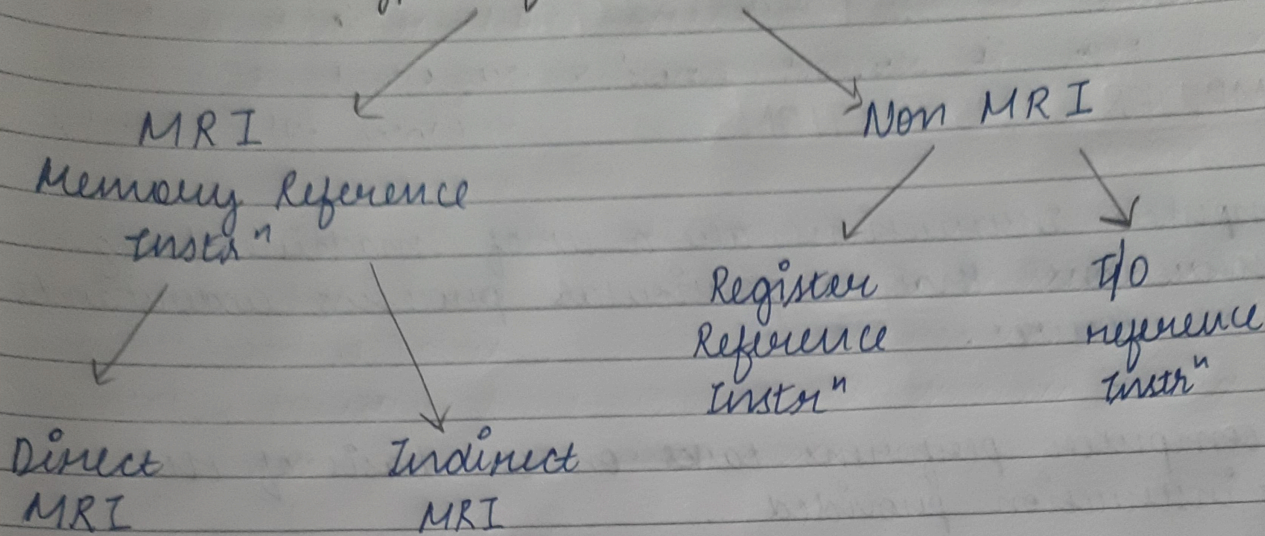 MRI
Non MRI
Memory Reference
Instrⁿ
Register
Reference
Instrⁿ
I/O
reference
Instrⁿ
Direct
MRI
Indirect
MRI